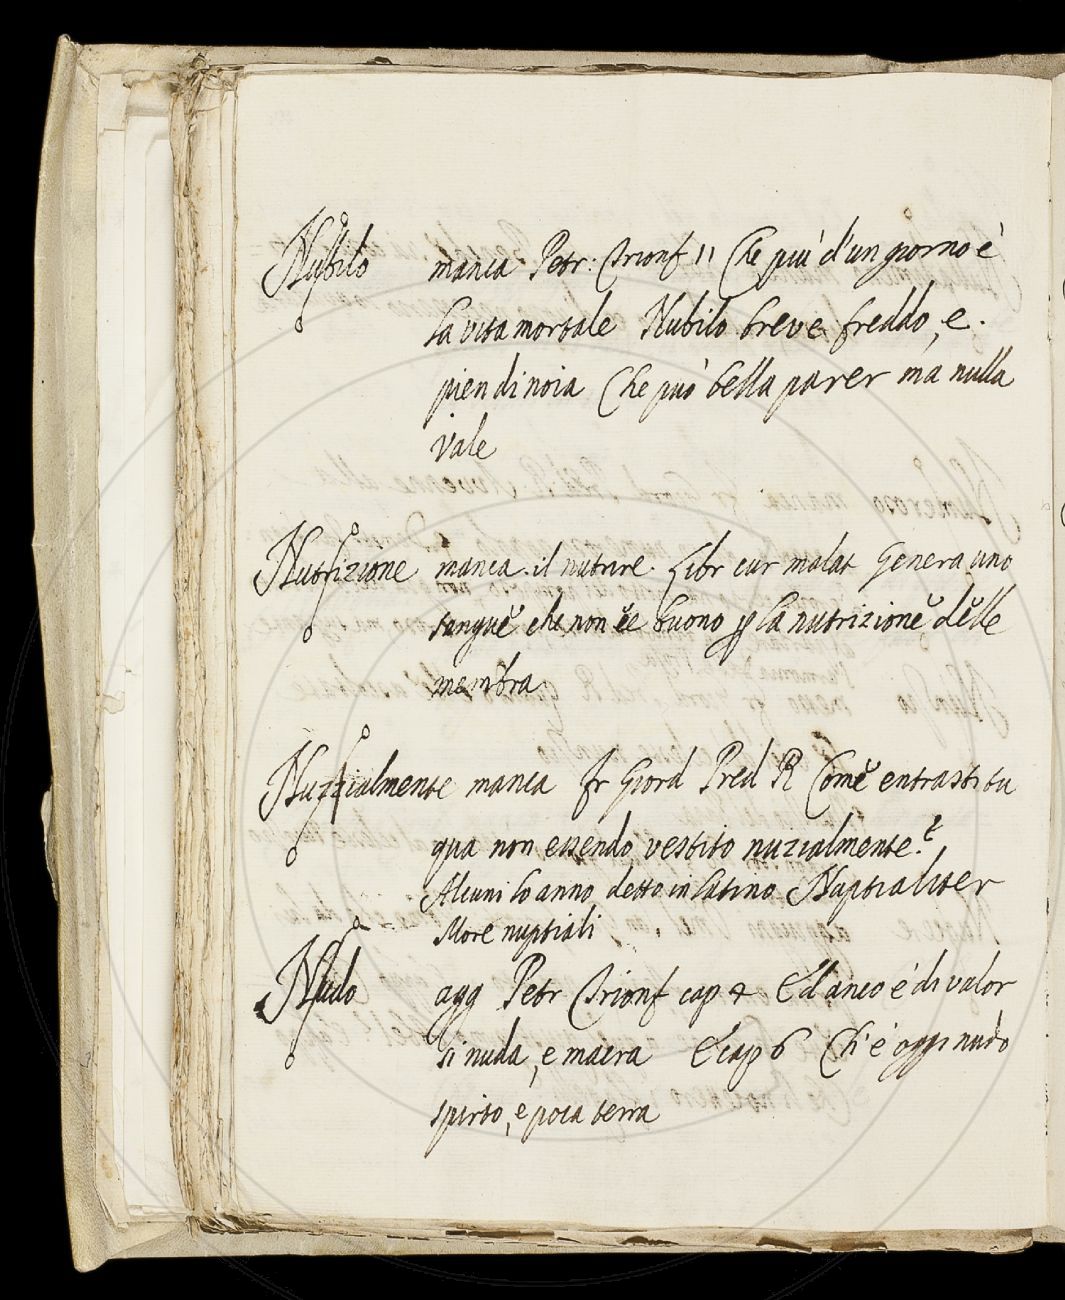 Nubilo manca Petr: Trionf 11 Che piu' d'un giorno è
la vita mortale Nubilo breve freddo, e.
pien di noia Che può bella parer ma nulla
vale
Nutrizione manca. il nutrire. Libr cur malat Genera uno
sangue che non èe buono p la nutrizione delle
membra
Nuzzialmente manca fr Giord Pred R Come entrasti tu
qua non essendo vestito nuzialmente.è
Alcuni lo anno detto in latino Nuptialiter
More nuptiali
Nudo agg Petr Trionf cap 4 Ed anco è di valor
si nuda, e macra E cap 6 Ch'è oggi nudo
spirto, e poca terra